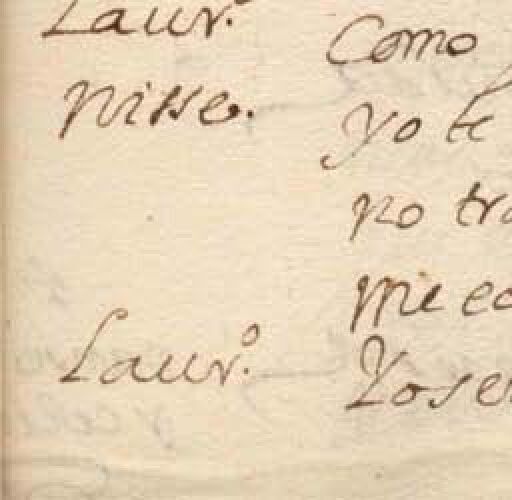 Laur.º Como
nisse. yo te
no tra
mi ec
Laur.º Yo se